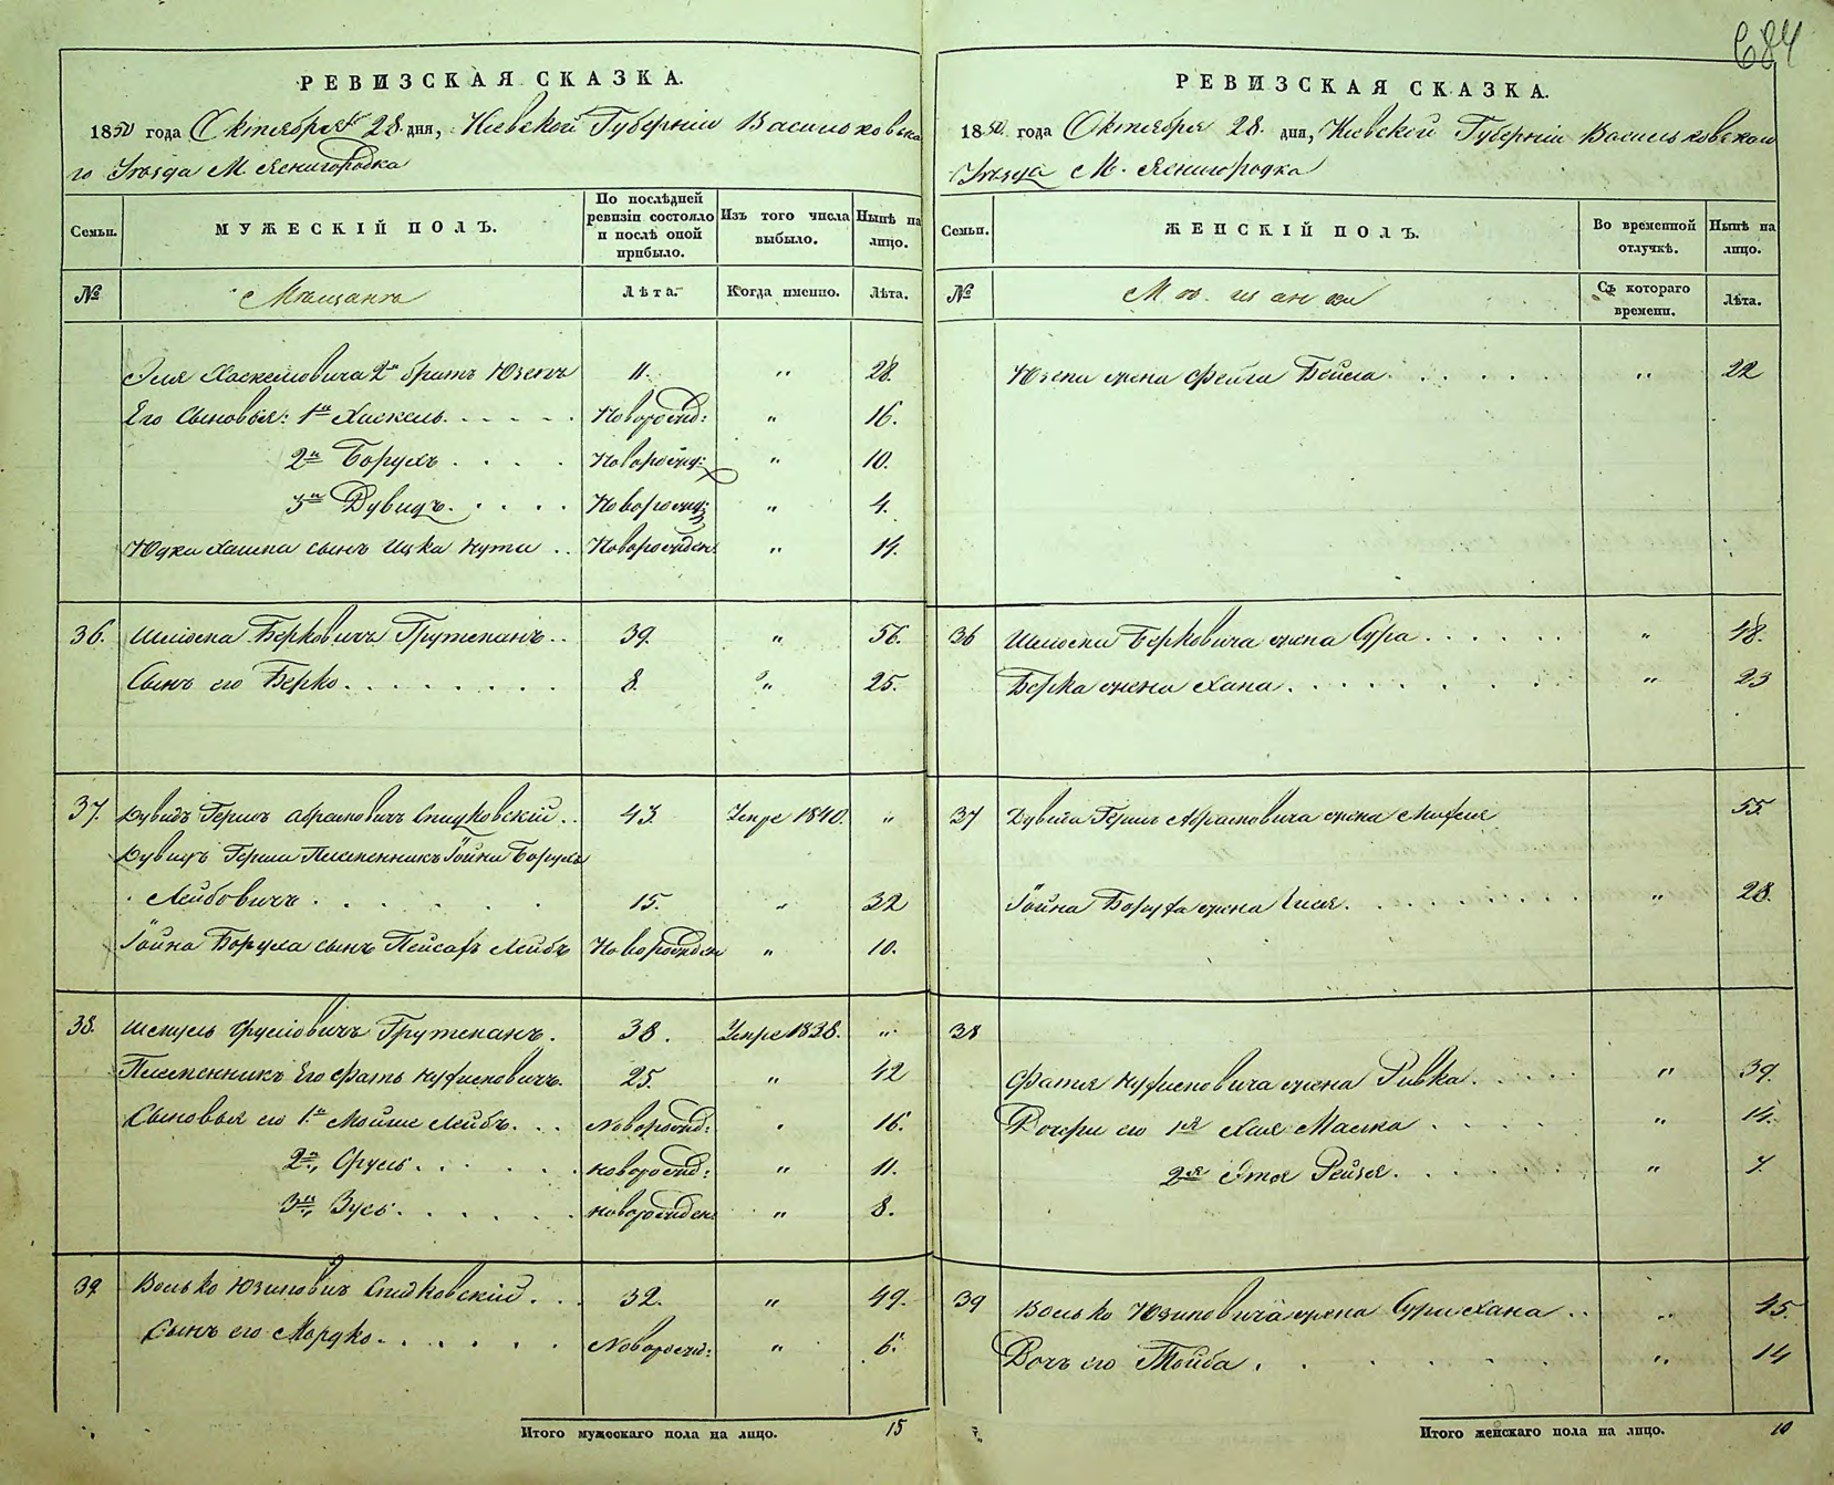 684
РЕВИЗСКАЯ СКАЗКА.
1850 года Октября 28 дня, Кіевской Губерніи Васильковска
го Уѣзда М. Яснигородка
Семьи.
МУЖЕСКІЙ ПОЛЪ.
По послѣдней
ревизіи состояло
и послѣ оной
прибыло.
Изъ того числа
выбыло.
Нынѣ на
лицо.
№
Мѣщанъ
Лѣта.
Когда именно.
Лѣта.
Хаскелловича 2й братъ Юзепъ 11. " 28.
Его Сыновья: 1й Хаскель Новорожд: " 16.
2й Борухъ Новорожд: " 10.
3й Дувидъ Новорожд: " 4.
сынъ Ицка Нута Новорожден. " 14.
36. Шліопа Берковичъ Грутепанъ 39. " 56.
Сынъ его Берко 8. " 25.
37. Дувидъ Гершъ Абрамовичъ Спичковскій 43. Умре 1840. "
Дувидъ Герша Племенникъ Іойна Борухъ
Лейбовичъ 15. " 32
Іойна Боруха сынъ Пейсахъ Лейбъ Новорожден " 10.
38. Шмуль Сруліовичъ Грутепанъ. 38. Умре 1838. "
Племенникъ Его 25. " 42
Сыновья его 1й Мойше Лейбъ Новорожд: " 16.
2й, Сруль Новорожд: " 11.
3й, Зусь Новорожден: " 8.
39 Волько Юзиповичъ Спичковскій 32. " 49.
Сынъ его Мордко Новорожд: " 6.
Итого мужескаго пола на лицо. 15
РЕВИЗСКАЯ СКАЗКА.
1850 года Октября 28. дня, Кіевской Губерніи Васильковскаго
Уѣзда М. Яснигородка
Семьи.
ЖЕНСКІЙ ПОЛЪ.
Во временной
отлучкѣ.
Нынѣ на
лицо.
№
Мѣщанки
Съ котораго
времени.
Лѣта.
Юзепа жена Фейга Бейла " 22
36 Шліопы Берковича жена Сура " 48.
Берка жена Хана " 23
37 Дувида Герша Абрамовича жена 55.
Іойна Боруха жена " 28.
38
жена Ривка " 39.
Дочери его 1я Хая Малка " 14.
2я Этя Рейзя " 7.
39 Волько Юзиповича жена Сури Хана " 45.
Дочь его Тойба " 14
Итого женскаго пола на лицо. 10